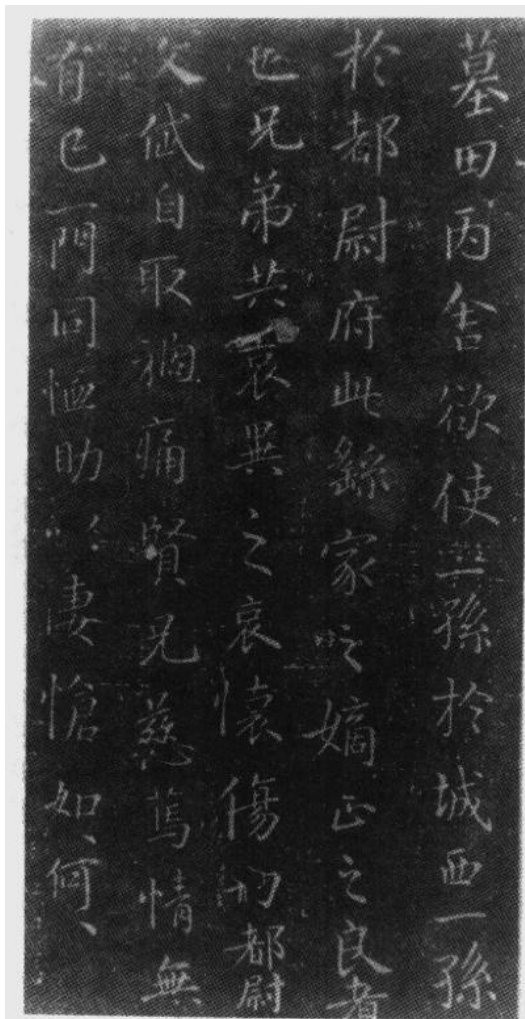 墓田丙舍欲使孫於城西一孫
於都尉府此繇家之嫡正之良者
也兄弟共哀異之哀懷傷切都尉
文岱自取禍痛賢兄慈篤情無
有已一門同恤助以悽愴如々何々